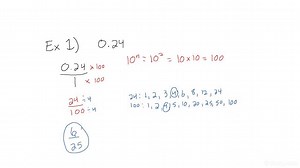 Ex 1) 0.24
0.24 ×100
1 ×100
10ⁿ = 10² = 10 × 10 = 100
24 ÷4
100 ÷4
24: 1, 2, 3, 4, 6, 8, 12, 24
100: 1, 2, 4, 5, 10, 20, 25, 50, 100
6
25